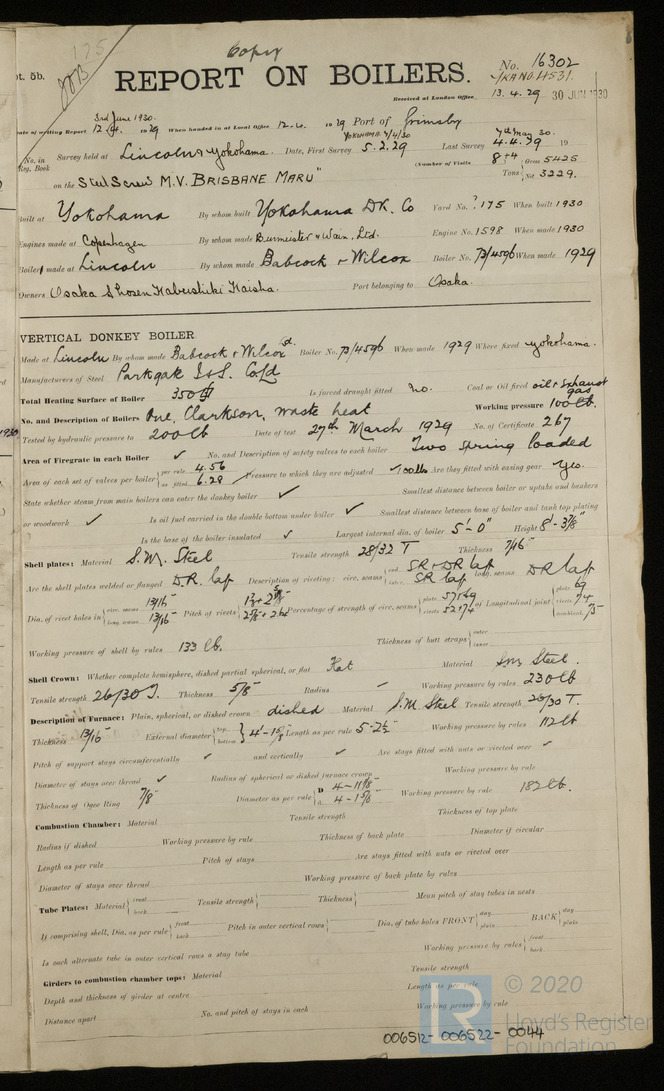 175
Copy
pt. 5b.
REPORT ON BOILERS.
No. 16302
YKA NO. 4531.
Received at London Office 13.4.29 30 JUN 1930
3rd June 1930.
Date of writing Report 12.4. 1929 When handed in at Local Office 12.4. 1929 Port of Grimsby
YOKOHAMA 7/4/30 7th May 30.
No. in Reg. Book Survey held at Lincoln & Yokohama. Date, First Survey 5.2.29 Last Survey 4.4.29 19
(Number of Visits 8+4 Gross 5425
on the Steel Screw M.V. BRISBANE MARU" Tons Net 3229.
Built at Yokohama By whom built Yokohama DK. Co Yard No. ?175 When built 1930
Engines made at Copenhagen By whom made Burmeister & Wain, Ltd. Engine No. 1598 When made 1930
Boiler made at Lincoln By whom made Babcock & Wilcox Boiler No. 73/4596 When made 1929
Owners Osaka Shosen Kabushiki Kaisha. Port belonging to Osaka.
VERTICAL DONKEY BOILER
Made at Lincoln By whom made Babcock & Wilcox Ld. Boiler No. 73/4596 When made 1929 Where fixed Yokohama.
Manufacturers of Steel Parkgate I&S. Co Ld
Total Heating Surface of Boiler 350 Is forced draught fitted No. Coal or Oil fired oil & Exhaust gas
No. and Description of Boilers One, Clarkson, waste heat Working pressure 100 lb.
Tested by hydraulic pressure to 200 lb Date of test 27th March 1929 No. of Certificate 267
Area of Firegrate in each Boiler ✓ No. and Description of safety valves to each boiler Two spring loaded
Area of each set of valves per boiler per rule 4.56 as fitted 6.28 Pressure to which they are adjusted 100 lbs Are they fitted with easing gear Yes.
State whether steam from main boilers can enter the donkey boiler ✓ Smallest distance between boiler or uptake and bunkers
or woodwork ✓ Is oil fuel carried in the double bottom under boiler ✓ Smallest distance between base of boiler and tank top plating
Is the base of the boiler insulated ✓ Largest internal dia. of boiler 5'-0" Height 8'-3⅞"
Shell plates: Material S.M. Steel Tensile strength 28/32 T Thickness 7/16"
Are the shell plates welded or flanged D.R. lap Description of riveting: circ. seams end SR & DR lap inter. SR lap long. seams DR lap
Dia. of rivet holes in circ. seams 13/16" long. seams 13/16" Pitch of rivets Percentage of strength of circ. seams plate 57 & 69 rivets 52 & 74 of Longitudinal joint plate 69 rivets 74 combined 75
Working pressure of shell by rules 133 lb. Thickness of butt straps outer inner
Shell Crown: Whether complete hemisphere, dished partial spherical, or flat Flat Material S.M. Steel.
Tensile strength 26/30 T. Thickness 5/8" Radius Working pressure by rules 230 lb
Description of Furnace: Plain, spherical, or dished crown dished Material S.M. Steel Tensile strength 26/30 T.
Thickness 13/16" External diameter top bottom 4'-1⅝" Length as per rule 5-2½" Working pressure by rules 112 lb
Pitch of support stays circumferentially ✓ and vertically ✓ Are stays fitted with nuts or riveted over ✓
Diameter of stays over thread ✓ Radius of spherical or dished furnace crown Working pressure by rule
Thickness of Ogee Ring 7/8" Diameter as per rule D 4-11⅛" d 4-1⅝" Working pressure by rule 182 lb.
Combustion Chamber: Material Tensile strength Thickness of top plate
Radius if dished Working pressure by rule Thickness of back plate Diameter if circular
Length as per rule Pitch of stays Are stays fitted with nuts or riveted over
Diameter of stays over thread Working pressure of back plate by rules
Tube Plates: Material front back Tensile strength Thickness Mean pitch of stay tubes in nests
If comprising shell, Dia. as per rule front back Pitch in outer vertical rows Dia. of tube holes FRONT stay plain BACK stay plain
Is each alternate tube in outer vertical rows a stay tube Working pressure by rules front back
Girders to combustion chamber tops: Material Tensile strength
Depth and thickness of girder at centre Length as per rule
Distance apart No. and pitch of stays in each Working pressure by rule
© 2020
Lloyd's Register
Foundation
006512-006522-0044